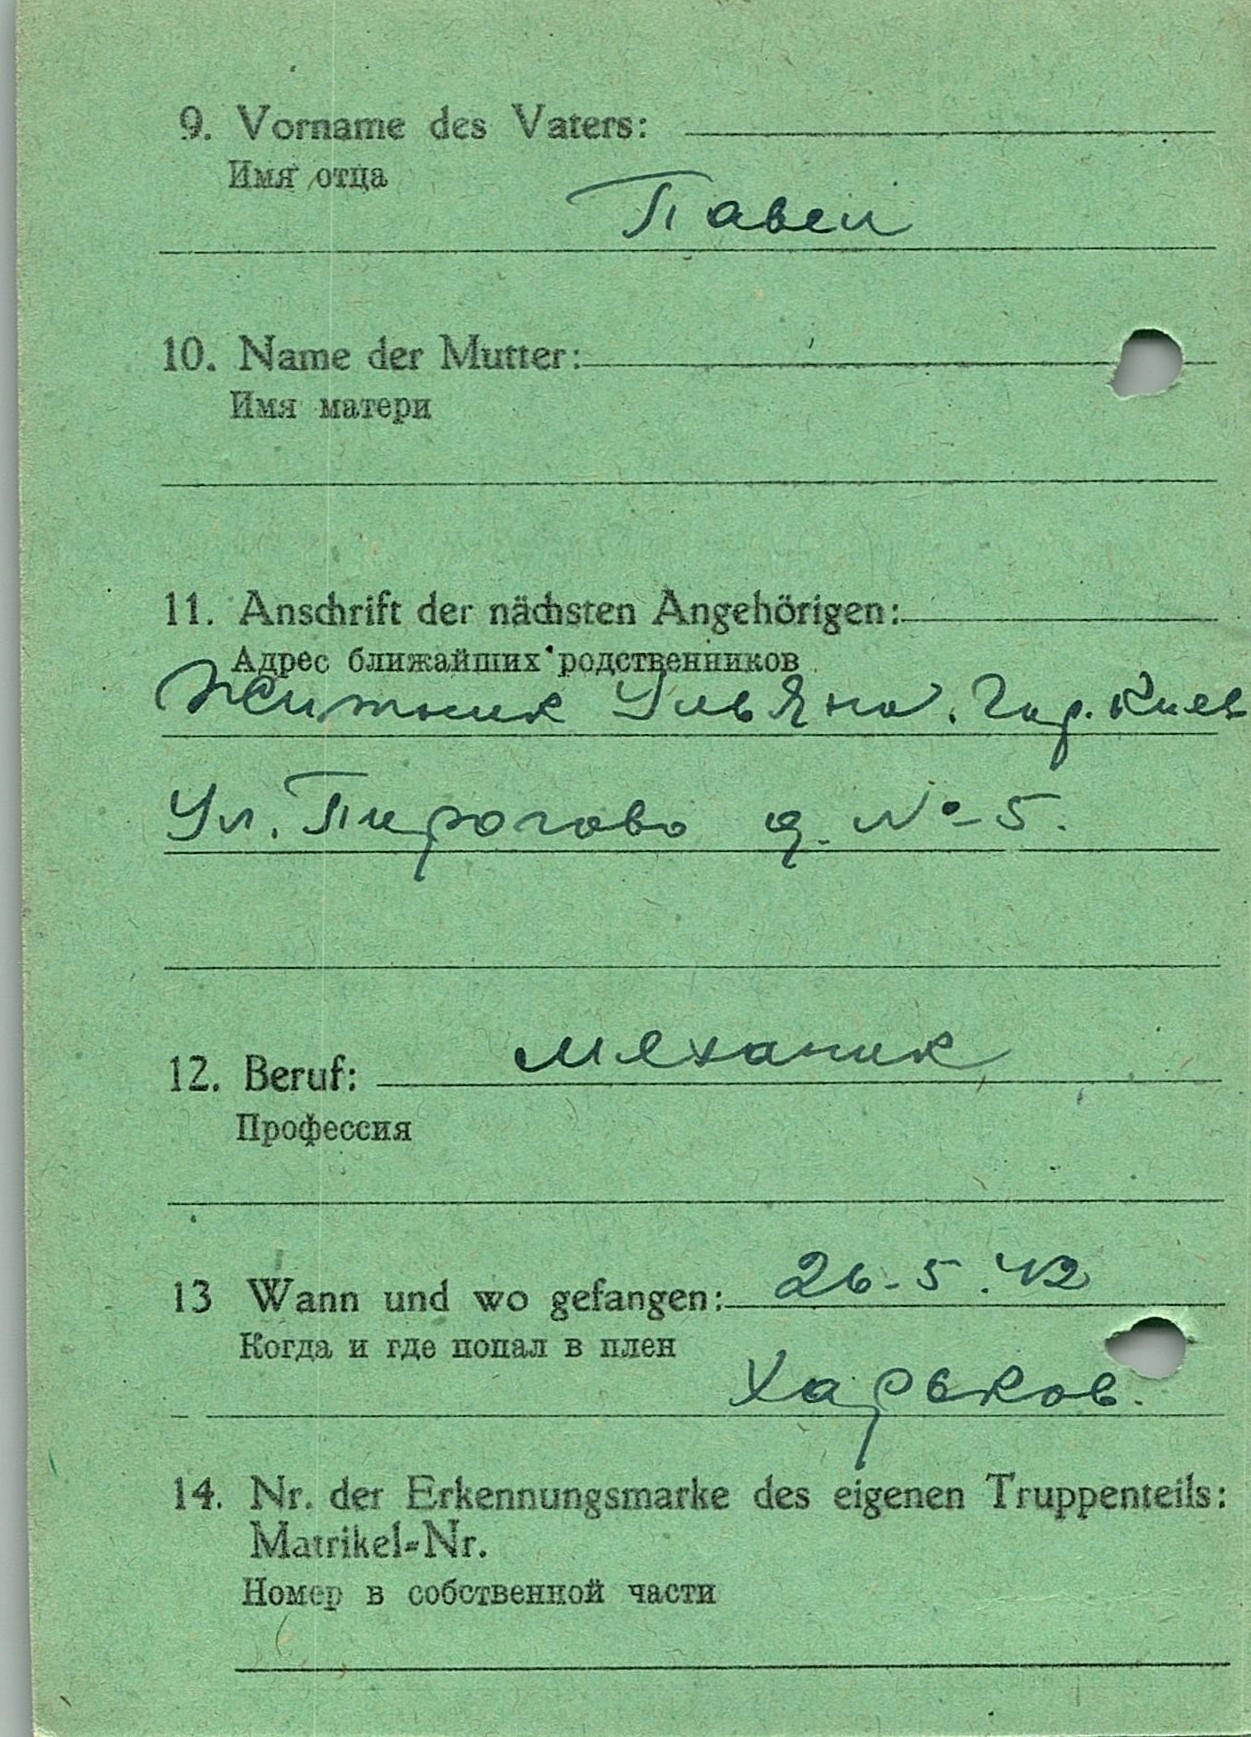 9. Vorname des Vaters:
Имя отца
Павел
10. Name der Mutter:
Имя матери
11. Anschrift der nächsten Angehörigen:
Адрес ближайших родственников
Житник Ульяна. Гор. Киев
Ул. Пирогова д. №-5.
механик
12. Beruf:
Профессия
13 Wann und wo gefangen: 26-5.42
Когда и где попал в плен
Харьков.
14. Nr. der Erkennungsmarke des eigenen Truppenteils:
Matrikel-Nr.
Номер в собственной части